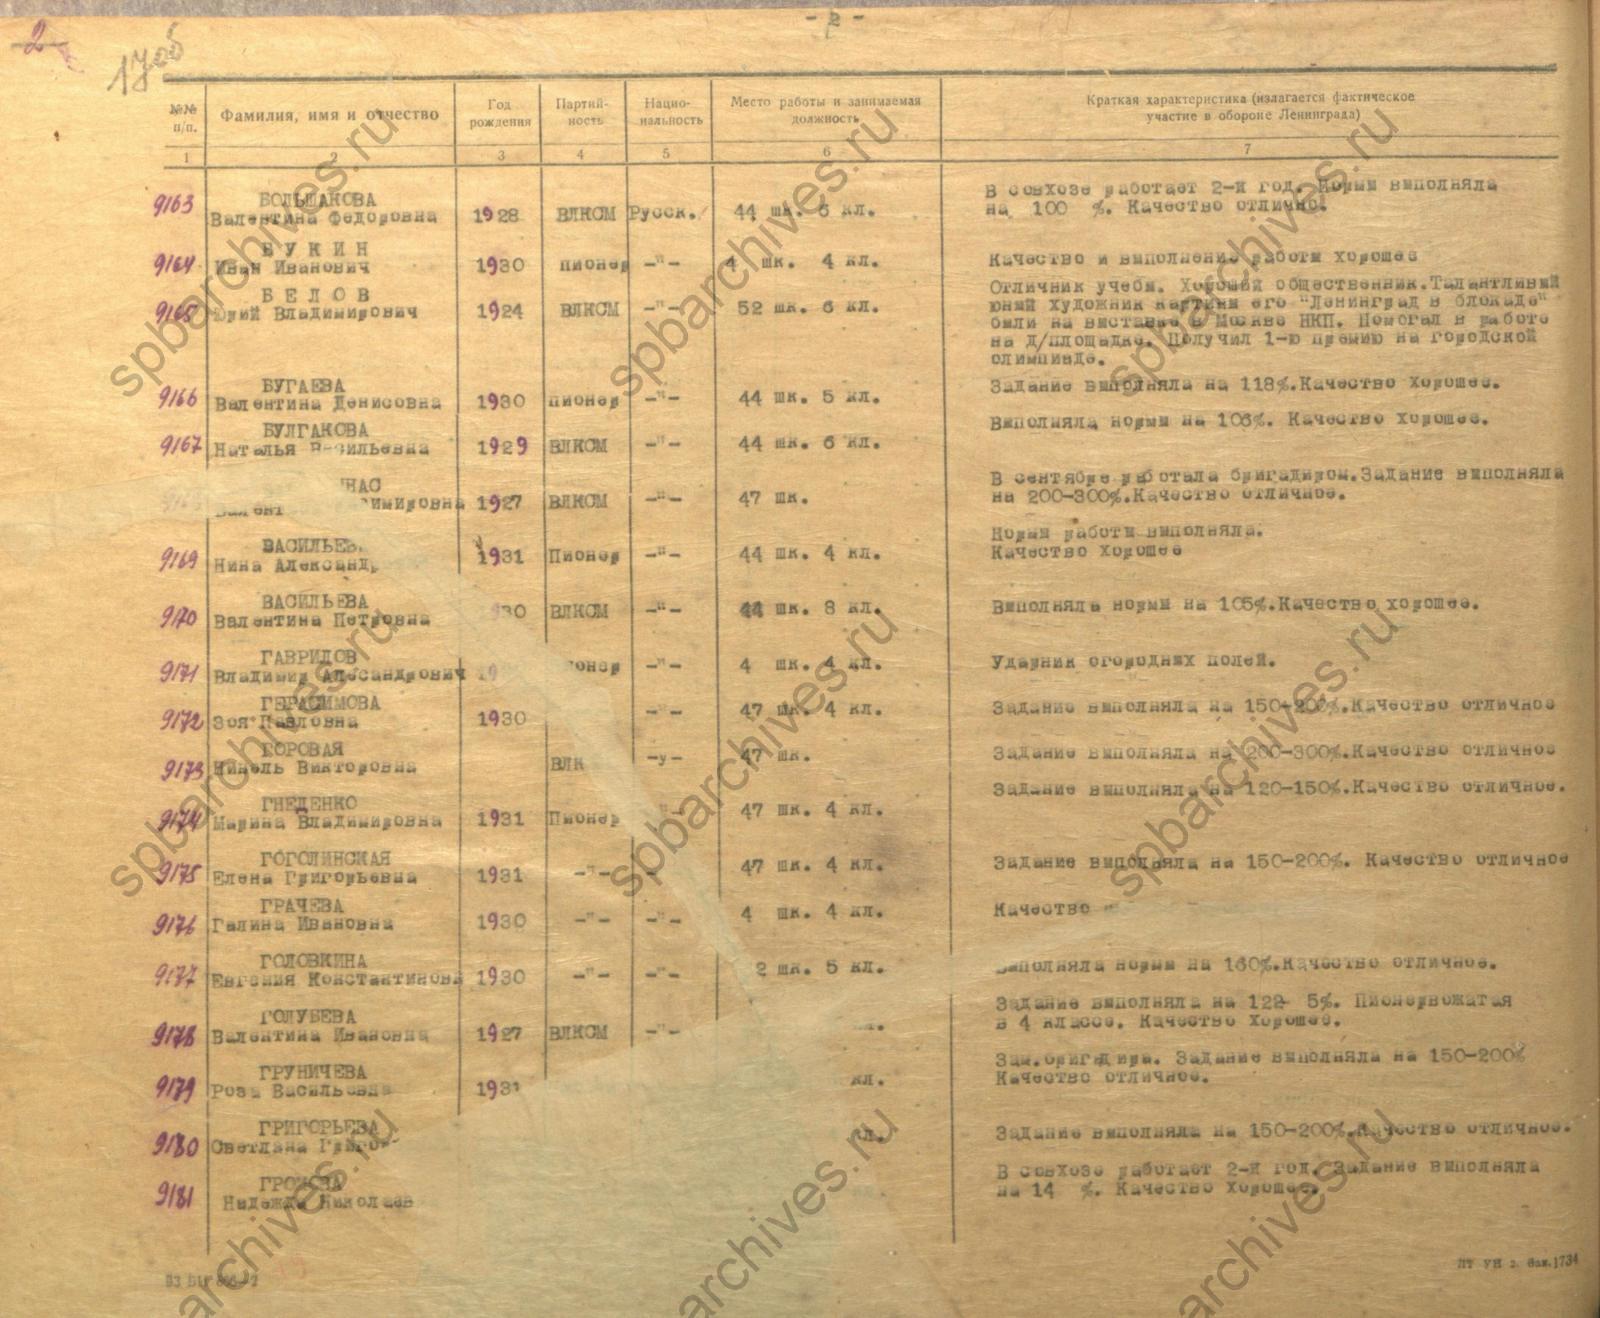 - 2 -
2
17об
№№ п/п. Фамилия, имя и отчество Год рождения Партий-ность Нацио-нальность Место работы и занимаемая должность Краткая характеристика (излагается фактическое участие в обороне Ленинграда)
1 2 3 4 5 6 7
В совхозе работает 2-й год. Нормы выполняла
9163 БОЛЬШАКОВА
Валентина Федоровна 1928 ВЛКСМ Русск. 44 шк. 6 кл. на 100 %. Качество отлично.
БУКИН
9164 Иван Иванович 1930 пионер -"- 4 шк. 4 кл. Качество и выполнение работы хорошее
Отличник учебы. Хороший общественник.Талантливый
БЕЛОВ юный художник картины его "Ленинград в блокаде"
9165 Юрий Владимирович 1924 ВЛКСМ -"- 52 шк. 6 кл. были на выставке в Москве НКП. Помогал в работе
на д/площадке. Получил 1-ю премию на городской
олимпиаде.
БУГАЕВА Задание выполняла на 118%.Качество хорошее.
9166 Валентина Денисовна 1930 пионер -"- 44 шк. 5 кл.
БУЛГАКОВА Выполняла нормы на 106%. Качество хорошее.
9167 Наталья Васильевна 1929 ВЛКСМ -"- 44 шк. 6 кл.
НАС В сентябре работала бригадиром.Задание выполняла
имировна 1927 ВЛКСМ -"- 47 шк. на 200-300%.Качество отличное.
Нормы работы выполняла.
9169 ВАСИЛЬЕВ
Нина Александр 1931 Пионер -"- 44 шк. 4 кл. Качество хорошее
ВАСИЛЬЕВА
9170 Валентина Петровна 30 ВЛКСМ -"- 44 шк. 8 кл. Выполняла нормы на 105%.Качество хорошее.
ГАВРИЛОВ
9171 Владимир Алесандрович 19 ионер -"- 4 шк. 4 кл. Ударник огородных полей.
ГЕРАСИМОВА
9172 Зоя Павловна 1930 -"- 47 шк. 4 кл. Задание выполняла на 150-200%.Качество отличное
БОРОВАЯ
9173 Нинель Викторовна ВЛК -у- 47 шк. Задание выполняла на 200-300%.Качество отличное
Задание выполняла на 120-150%.Качество отличное.
ГНЕДЕНКО
9174 Марина Владимировна 1931 Пионер "- 47 шк. 4 кл.
ГОГОЛИНСКАЯ
9175 Елена Григорьевна 1931 -"- - 47 шк. 4 кл. Задание выполняла на 150-200%. Качество отличное
ГРАЧЕВА
9176 Галина Ивановна 1930 -"- -"- 4 шк. 4 кл. Качество
ГОЛОВКИНА
9177 Евгения Константиновн 1930 -"- -"- 2 шк. 5 кл. выполняла нормы на 160%.Качество отличное.
ГОЛУБЕВА Задание выполняла на 122- 5%. Пионервожатая
9178 Валентина Ивановна 1927 ВЛКСМ -"- л. в 4 классе. Качество хорошее.
ГРУНИЧЕВА Зам.бригадира. Задание выполняла на 150-200%
9179 Роза Васильевна 1931 кл. Качество отличное.
ГРИГОРЬЕВА
9180 Светлана Григо кл. Задание выполняла на 150-200%.Качество отличное.
ГРОМОВА В совхозе работает 2-й год. Задание выполняла
9181 Надежда Николаев на 14 %. Качество хорошее.
ЛТ УН з. Зак.1734
spbarchives.ru
spbarchives.ru
spbarchives.ru
spbarchives.ru
spbarchives.ru
spbarchives.ru
archives.ru
archives.ru
archives.ru